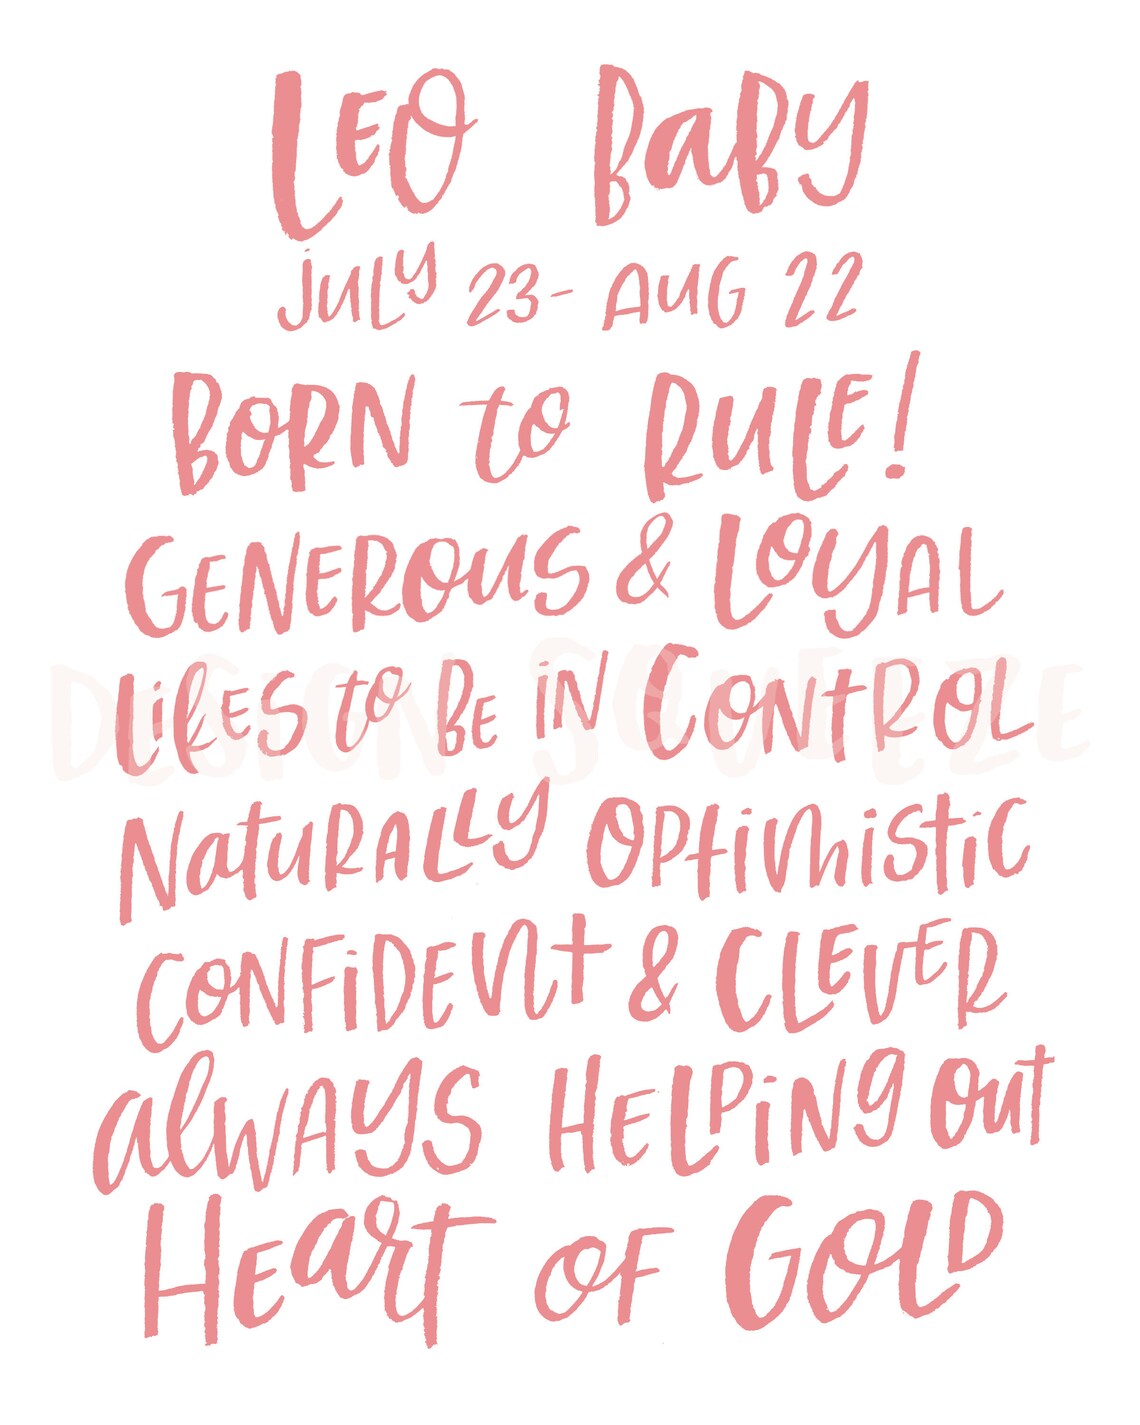 LEO BaBy
JULY 23- AUG 22
BORN to RULE!
GENEROUS & LOYAL
LikES to BE iN CONtROL
NatURALLY OPtimistic
CONFiDENt & CLEVER
alWAYS HELPiNg Out
HEart OF GOLD
DESIGN SQUEEZE